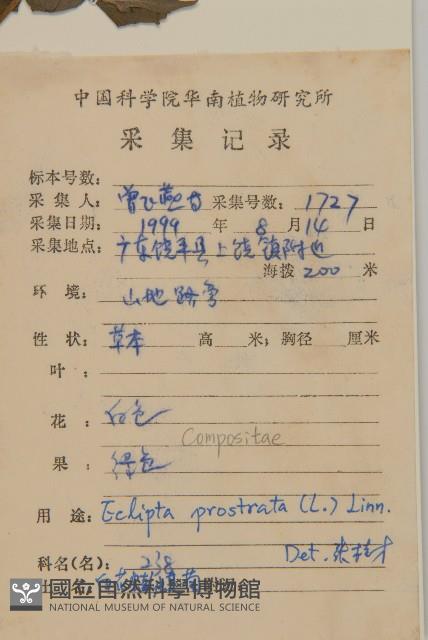 中国科学院华南植物研究所
采集记录
标本号数:
采集人: 曾飞燕 采集号数: 1727
采集日期: 1999 年 8 月 14 日
采集地点: 广东饶平县上饶镇附近
海拨 200 米
环境: 山地路旁
性状: 草本 高 米; 胸径 厘米
叶:
花: 白色
Compositae
果: 绿色
用途: Eclipta prostrata (L.) Linn.
Det. 张桂才
科名(名): 238
國立自然科學博物館
NATIONAL MUSEUM OF NATURAL SCIENCE